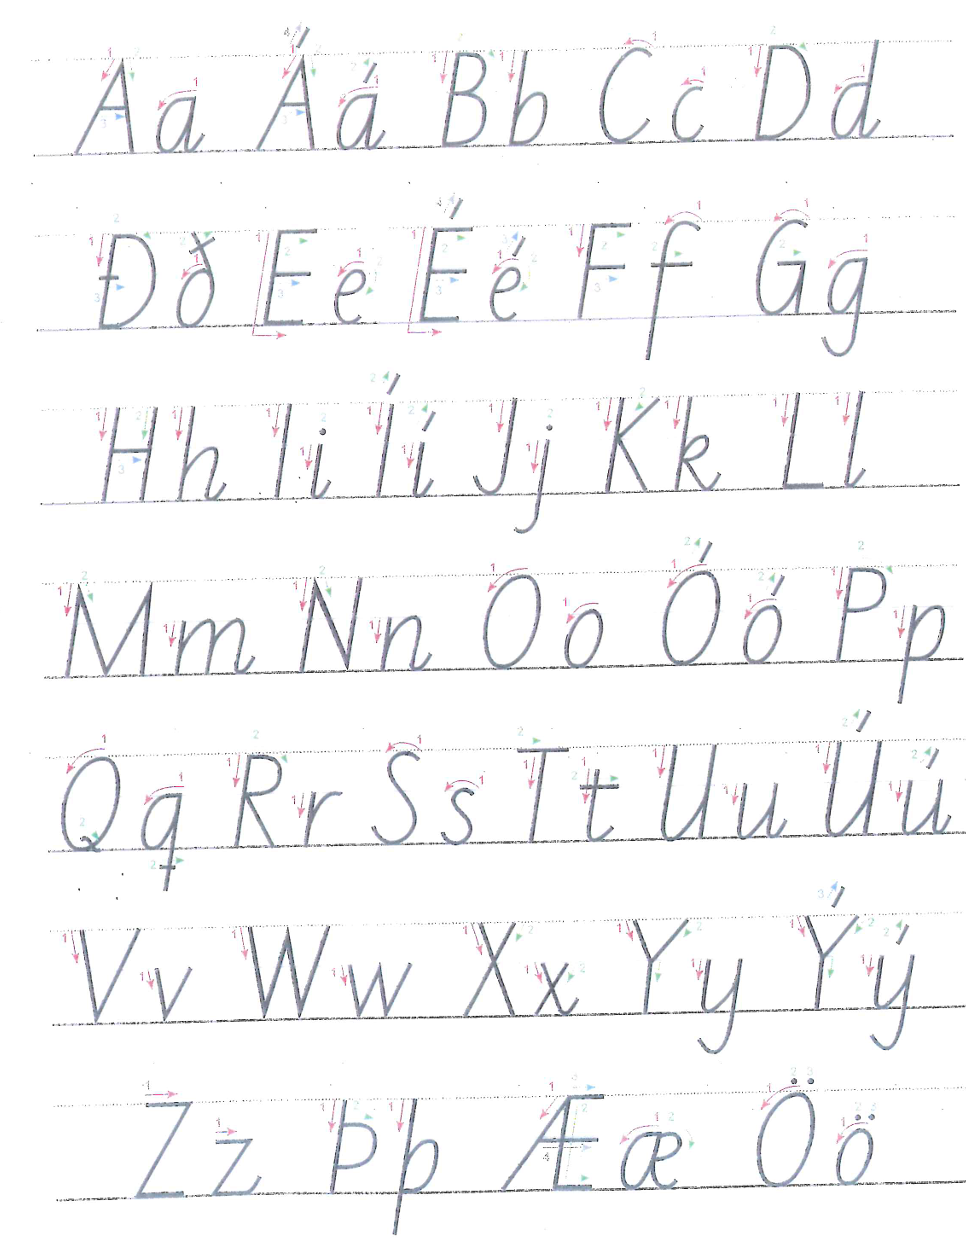 Aa Áá Bb Cc Dd
Ðð Ee Éé Ff Gg
Hh Ii Íí Jj Kk Ll
Mm Nn Oo Óó Pp
Qq Rr Ss Tt Uu Úú
Vv Ww Xx Yy Ýý
Zz Þþ Ææ Öö